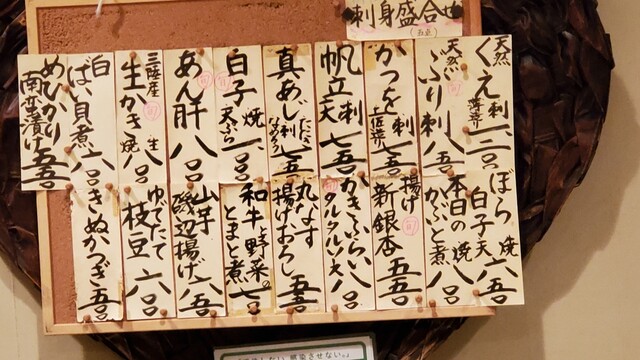 刺身盛合せ
(五点)
天然
くえ刺
薄造り
一、二〇〇
天然
ぶり刺
旬
八五〇
かつを刺
土佐造り
七五〇
帆立刺
天
七五〇
真あじ刺
たたき
なめろう
七五〇
白子
焼
天ぷら
旬
一、〇〇〇
あん肝
旬
八〇〇
三陸産
生かき
旬
生
焼
八〇〇
白ばい貝煮
六〇〇
めひかり
南蛮漬け
五五〇
ぼら白子天
焼
六五〇
本日の
かぶと煮
焼
八〇〇
揚げ新銀杏
旬
五五〇
かきふらい
タルタルソース
旬
八〇〇
丸なす
揚げおろし
五五〇
和牛と野菜の
とまと煮
七〇〇
山芋
磯辺揚げ
六五〇
ゆでたて
枝豆
六〇〇
きぬかつぎ
五五〇
感染させない。